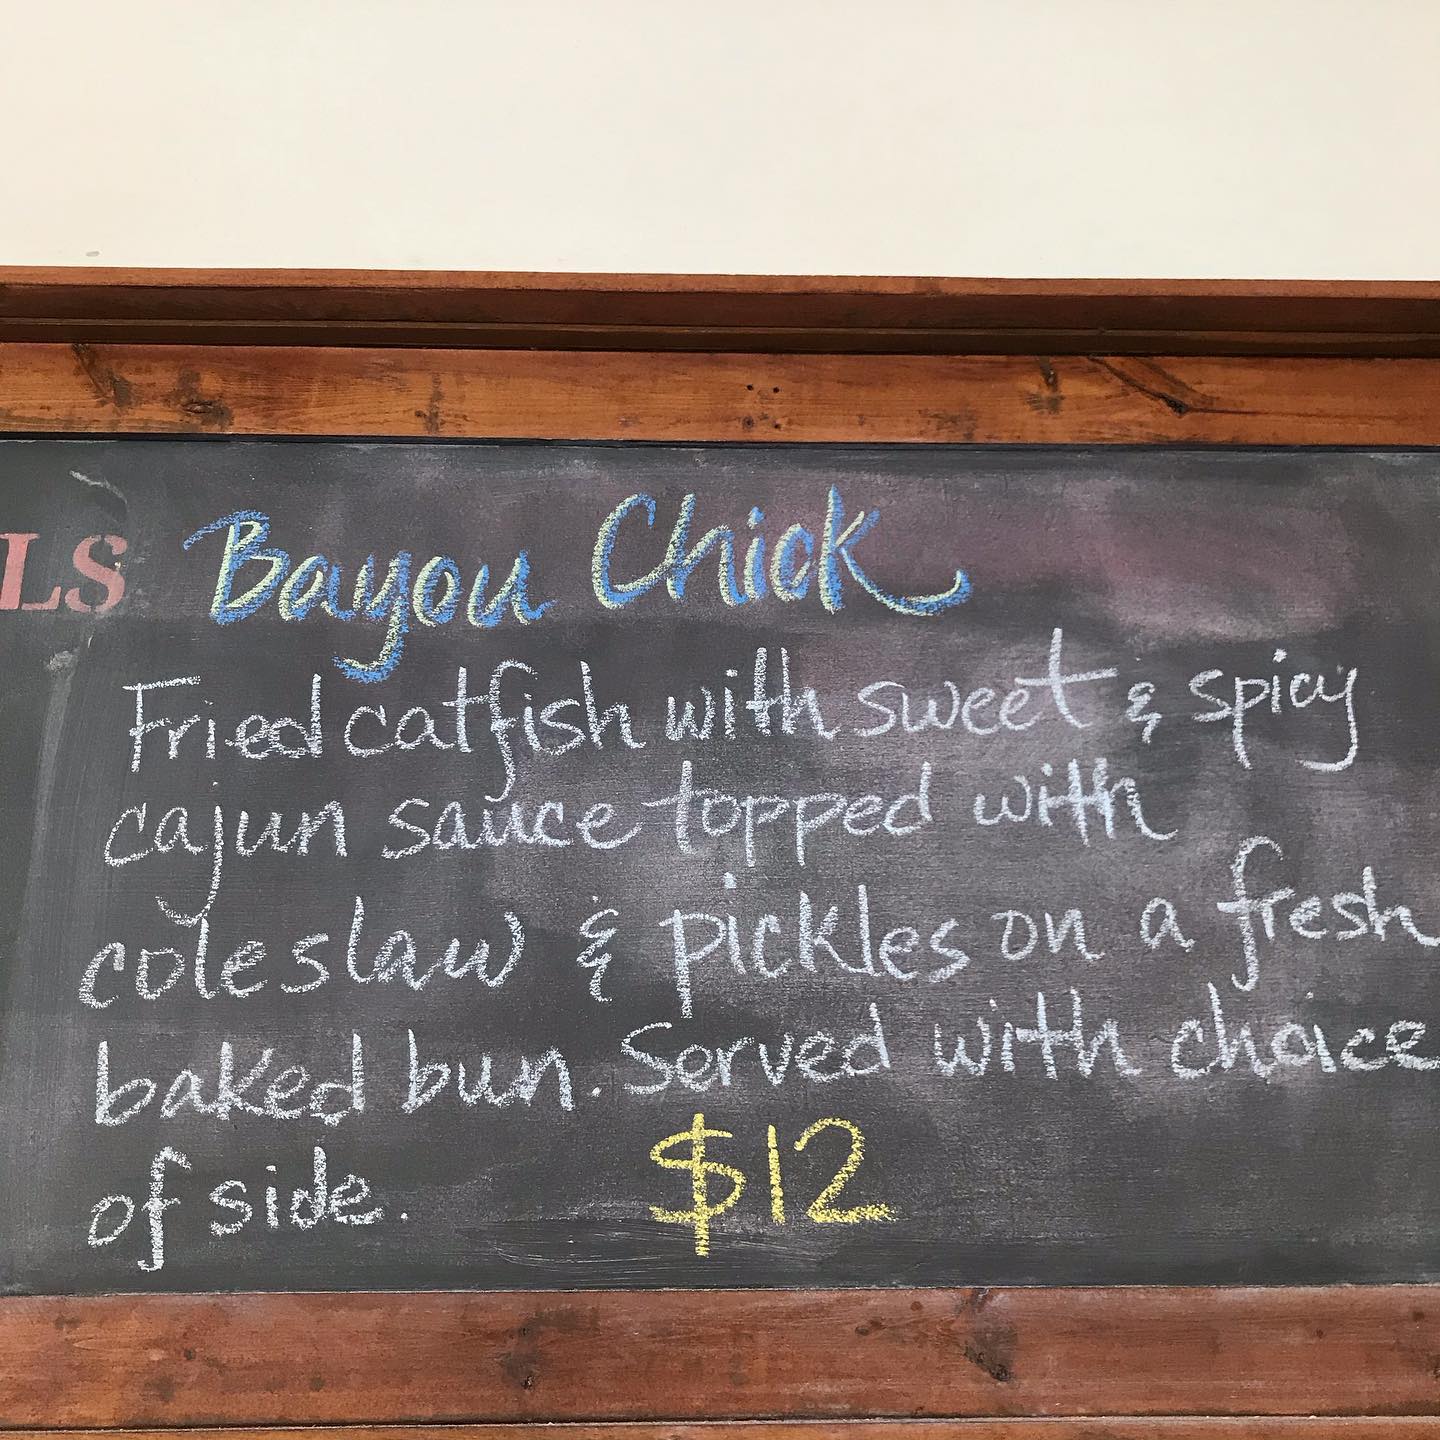 LS Bayou Chick
Fried catfish with sweet & spicy
cajun sauce topped with
coleslaw & pickles on a fresh
baked bun. Served with choice
of side. $12